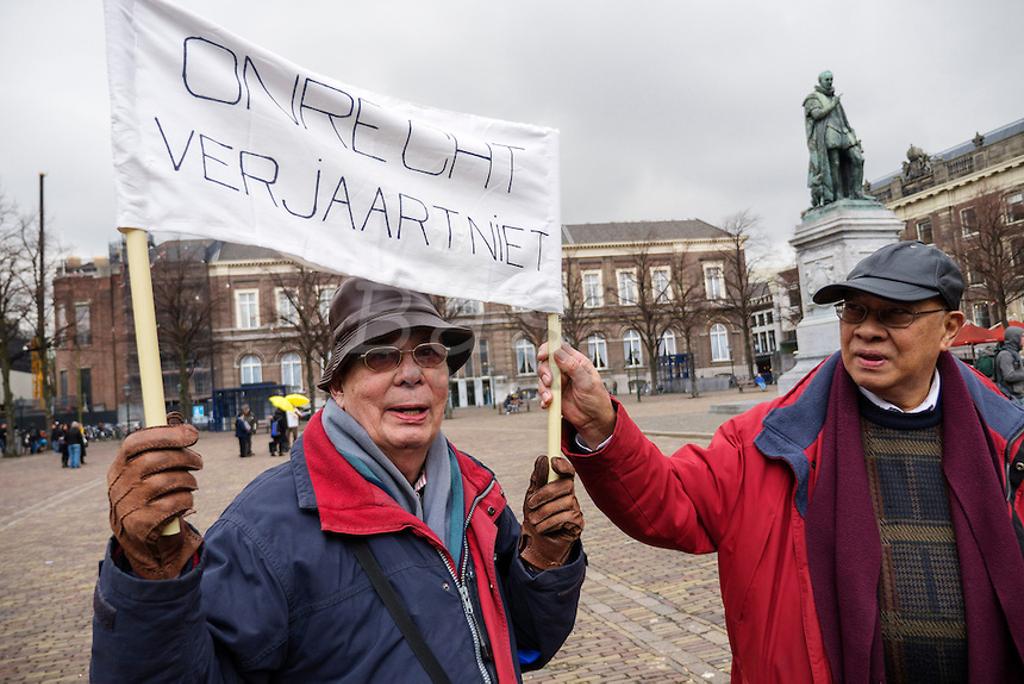 ONRECHT
VERJAART NIET